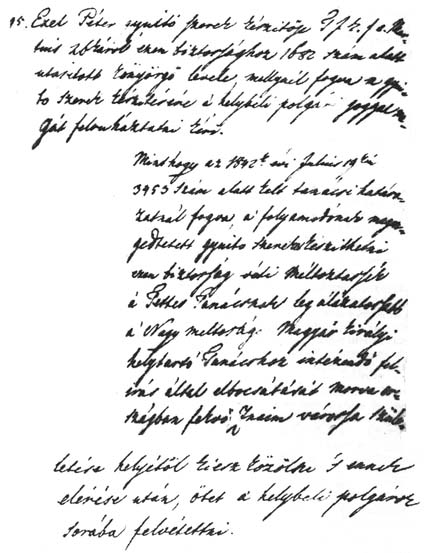 95. Exel Péter gyujtó szerek készitője f. é. Mar-
tius 26káról ezen biztossághoz 1682 szám alatt
utasitott könyörgő levele mellynél fogva a gyuj-
tó szerek készitésére a helybéli polgári joggal ma-
gát felruháztatni kéri.
Minthogy az 1842k évi Julius 19kéről
3953 szám alatt kelt tanácsi határo-
zatnál fogva a folyamodónak megen-
gedtetett gyujtó szereket készithetni
ezen biztosság véli méltóztassék
a Tettes Tanácsnak leg alázatossabb
a Nagy méltóság. Magyar királyi
helytartó Tanácshoz intézendő fel-
irás által elbocsátását morva or-
szágban fekvő Znaim városa szüle-
tésire helyétől kieszközölni s ennek
elérése után, őtet a helybeli polgárok
sorába felvétetni.